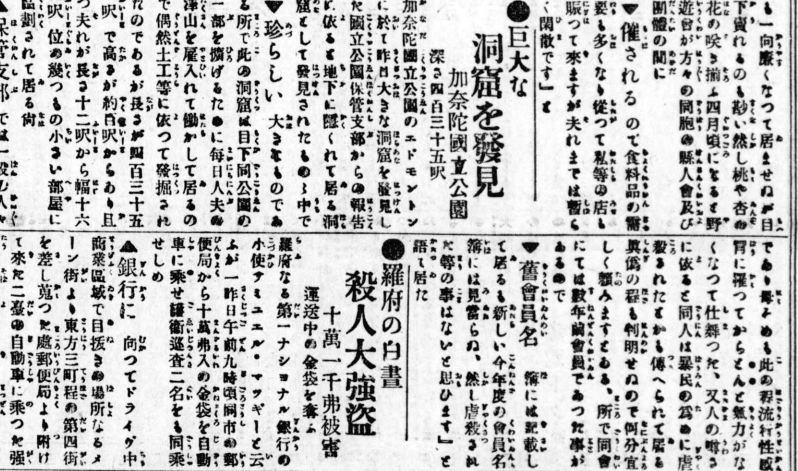 も一向廉くなつて居ませぬが目
下賣れるのも尠い然し桃や杏の
花の咲き揃ふ四月頃になると野
遊會が方々の同胞の縣人會及び
團體の間に
▼催される ので食料品の需
要も多くなり從つて私等の店も
賑つて來ますが夫れまでは暫ら
く閑散です」と
●巨大な
洞窟を發見
加奈陀國立公園
深さ四百三十五呎
加奈陀國立公園のエドモントン
に於て昨日大きな洞窟を發見し
た國立公園保管支部からの報告
に依ると地下に隱れて居る洞
窟として發見されたものゝ中で
▼珍らしい 大きなものであ
る所で此の洞窟は目下同公園の
一部を擴げるために毎日人夫の
澤山を雇入れて働かして居るの
で偶然土工等に依つて發掘され
たのであるが長さが四百三十五
呎で高さが約百呎からあり且
つ夫れが長さ十二呎から幅十六
呎位の幾つもの小さい部屋に
區劃されて居る
保管支部 では一般の人
であり 此の程流行性感
冒に罹つてからとんと無力がな
くなつて仕舞つた、又人の噂
に依ると同人は暴民の爲めに虐
殺されたとかも傳へられて居る
眞僞の程も判明せぬので何分宜
しく頼みますとある、所で同會
にては數年前會員であつた事が
あるので
▼舊會員名 簿には記載し
て居るも新しい今年度の會員名
簿には見當らぬ、然し虐殺され
た等の事はないと思ひます」と
語り居た
●羅府の白晝
殺人大強盜
十萬一千弗被害
運送中の金袋を奪ふ
羅府なる第一ナショナル銀行の
小使サミユエル・マツギーと云
ふが一昨日午前九時頃同市の郵
便局から十萬弗入の金袋を自動
車に乘せ護衛巡査二名をも同乘
せしめ
▲銀行に 向つてドライヴ中
商業區域で目拔きの場所なるメ
ーン街より東方三町程の第四街
を差し蒐つた處郵便局より附け
て來た二臺の自動車に乘つた強